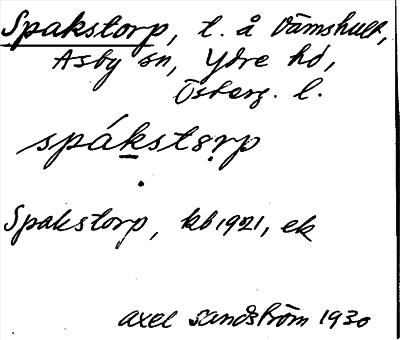 Spakstorp, t. å Dämshult,
Asby sn, Ydre hd,
Österg. l.
spákstɘrp
Spakstorp, kb 1921, ek
Axel Sandström 1930